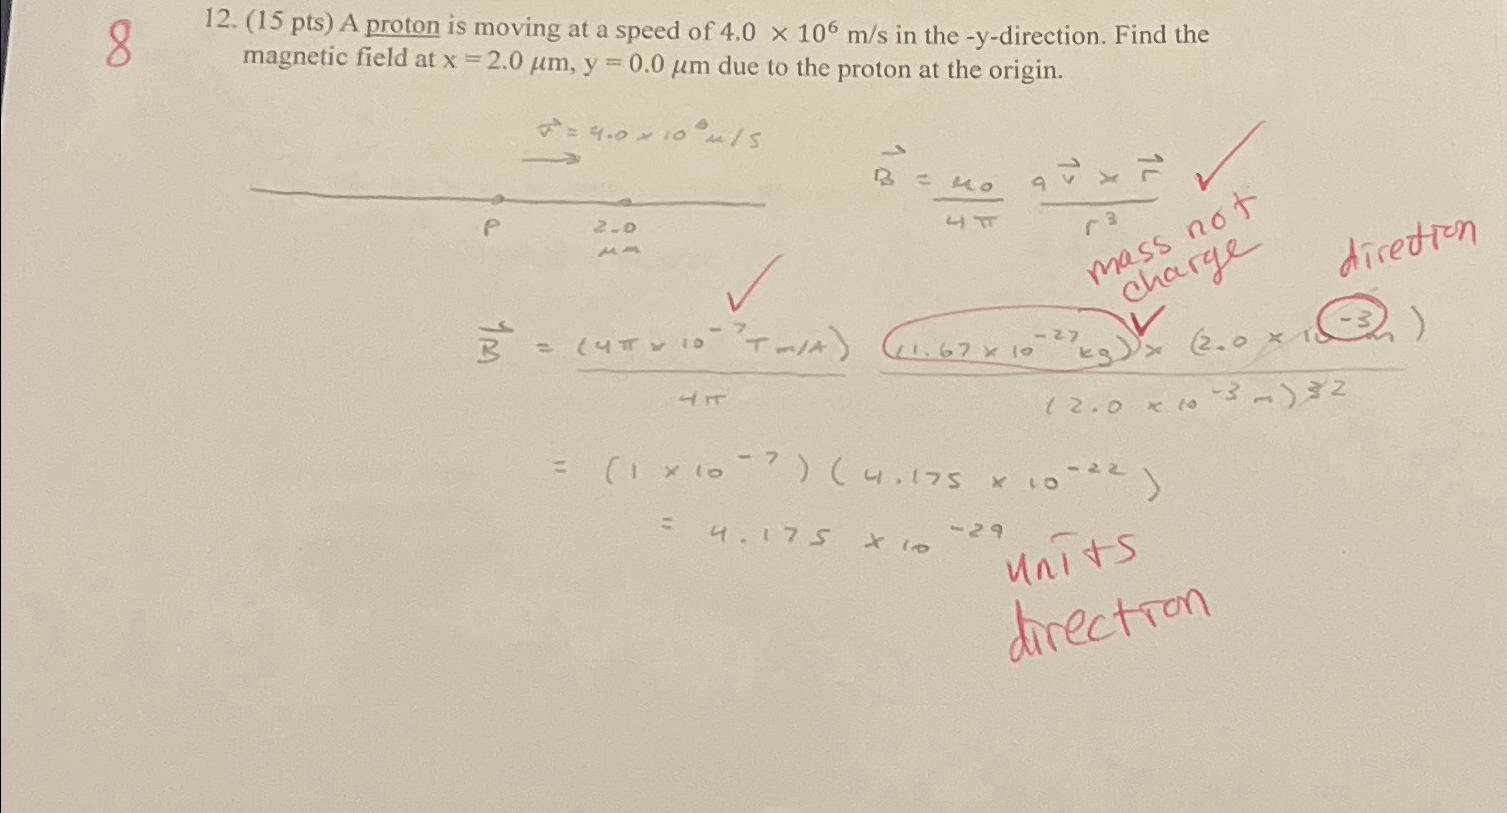 8
12. (15 pts) A proton is moving at a speed of 4.0 × 10⁶ m/s in the -y-direction. Find the
magnetic field at x = 2.0 μm, y = 0.0 μm due to the proton at the origin.
v⃗ = 4.0 × 10⁶ m/s
→
P 2.0 μm
B⃗ = μ₀/4π q v⃗ × r⃗ / r³ ✓
mass not
charge
direction
✓
B⃗ = (4π × 10⁻⁷ T m/A)/4π (1.67 × 10⁻²⁷ kg) × (2.0 × 10⁻³ m) / (2.0 × 10⁻³ m)² ✓
= (1 × 10⁻⁷) (4.175 × 10⁻²²)
= 4.175 × 10⁻²⁹
units
direction